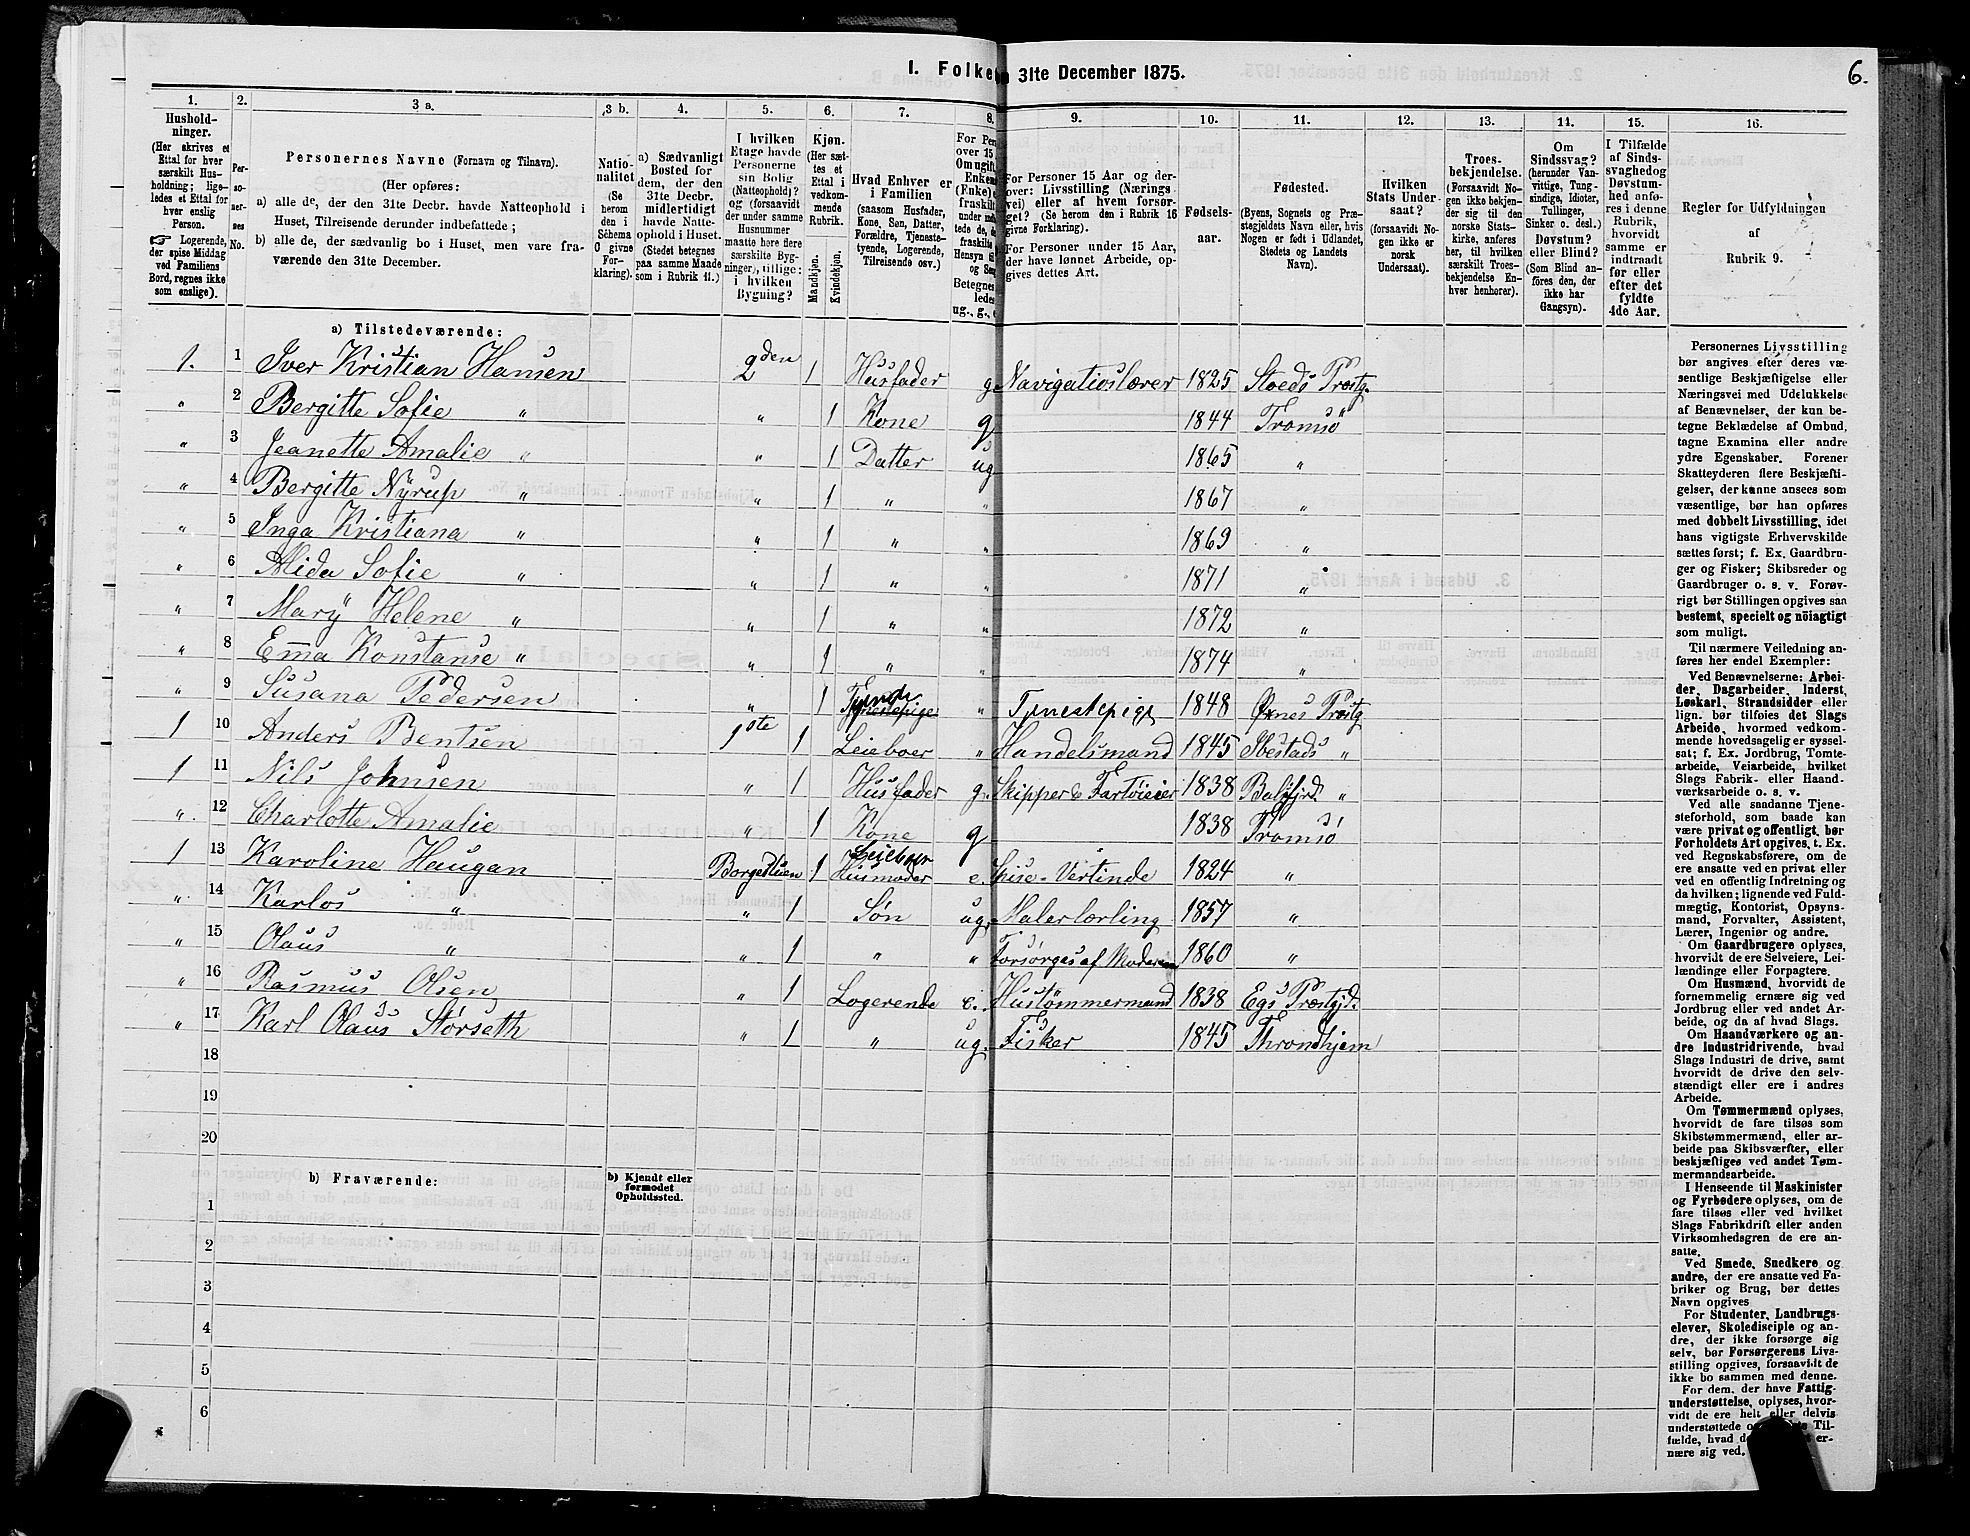 1. Folke 31te December 1875.
6.
1.
Hushold-
ninger.
(Her skrives et
Ettal for hver
særskilt Hus-
holdning; lige-
ledes et Ettal for
hver enslig
Person.
☞ Logerende,
der spise Middag
ved Familiens
Bord, regnes ikke
som enslige).
2.
Per-
so-
ner-
nes
No.
3 a.
Personernes Navne (Fornavn og Tilnavn).
(Her opføres:
a) alle de, der den 31te Decbr. havde Natteophold i
Huset, Tilreisende derunder indbefattede;
b) alle de, der sædvanlig bo i Huset, men vare fra-
værende den 31te December.
3 b.
Natio-
nalitet
(Se
herom
den i
Schema
O givne
For-
klaring).
4.
a) Sædvanligt
Bosted for
dem, der den
31te Decbr.
midlertidigt
havde Natte-
ophold i Huset.
(Stedet betegnes
paa samme Maade
som i Rubrik 11.)
5.
I hvilken
Etage havde
Personerne
sin Bolig
(Natteophold)?
og (forsaavidt
der under samme
Husnummer
maatte høre flere
særskilte Byg-
ninger), tillige:
i hvilken
Bygning?
6.
Kjøn.
(Her sæt-
tes et
Ettal i
vedkom-
mende
Rubrik.
Mandkjøn.
Kvindekjøn.
7.
Hvad Enhver er
i Familien
(saasom Husfader,
Kone, Søn, Datter,
Forældre, Tjeneste-
tyende, Logerende,
Tilreisende osv.)
8.
For Per
over 15
Om ugift
Enkem
(Enke) e
fraskilt
under med
tede de, d
fraskilte
Hensyn til
og Sen
Betegnes
ledes
ug., g., e
9.
For Personer 15 Aar og der-
over: Livsstilling (Nærings
vei) eller af hvem forsør-
get? (Se herom den i Rubrik 16
givne Forklaring).
For Personer under 15 Aar,
der have lønnet Arbeide, op-
gives dettes Art.
10.
Fødsels-
aar.
11.
Fødested.
(Byens, Sognets og Præ-
stegjeldets Navn eller, hvis
Nogen er født i Udlandet,
Stedets og Landets
Navn).
12.
Hvilken
Stats Under-
saat?
(forsaavidt No-
gen ikke er
norsk
Undersaat).
13.
Troes-
bekjendelse.
(Forsaavidt No-
gen ikke bekjen-
der sig til den
norske Stats-
kirke, anføres
her, til hvilken
særskilt Troes-
bekjendelse En-
hver henhører).
14.
Om
Sindssvag?
(herunder Van-
vittige, Tung-
sindige, Idioter,
Tullinger,
Sinker o. desl.)
Døvstum?
eller Blind?
(Som Blind an-
føres den, der
ikke har
Gangsyn).
15.
I Tilfælde
af Sinds-
svaghed og
Døvstum-
hed anfø-
res i denne
Rubrik,
hvorvidt
samme er
indtraadt
før eller
efter det
fyldte
4de Aar.
16.
Regler for Udfyldningen
af
Rubrik 9.
a) Tilstedeværende:
1. 1 Iver Kristian Hansen 2den 1 Husfader g Navigationslærer 1825 Stoeds Præstg.
" 2 Bergitte Sofie " " 1 Kone g 1844 Tromsö
" 3 Jeanette Amalie " " 1 Datter ug 1865 "
" 4 Bergitte Nÿrup " " 1 " " 1867 "
" 5 Inga Kristiana " " 1 " " 1869 "
" 6 Alida Sofie " " 1 " " 1871 "
" 7 Marÿ Helene " " 1 " " 1872 "
" 8 Emma Konstanse " " 1 " " 1874 "
" 9 Susana Pedersen " 1 Tyende Tjenestepige " Tjenestepige 1848 Øxnes Præstg
1 10 Anders Bentsen 1ste 1 Leieboer " Handelsmand 1845 Ibestads "
1 11 Nils Johnsen " 1 Husfader g. Skipper & Fartøieier 1838 Balsfjrd. "
" 12 Charlotte Amalie " 1 Kone g 1838 Tromsö
1 13 Karoline Haugan Borgestuen 1 Leieboer Husmoder e. Spise-Vertinde 1824 "
" 14 Karlos " " 1 Søn ug. Malerlærling 1857 "
" 15 Olaus " " 1 " " Forsörges af Moderen 1860 "
" 16 Rasmus Olsen " 1 Logerende e. Hustømmermand 1838 Egs Præstgjd.
" 17 Karl Olaus Störseth " 1 " ug. Fisker 1845 Throndhjem
18
19
20
b) Fraværende:
b) Kjendt eller
formodet
Opholdssted.
1
2
3
4
5
6
Personernes Livsstilling
bør angives efter deres væ-
sentlige Beskjæftigelse eller
Næringsvei med Udelukkelse
af Benævnelser, der kun be-
tegne Beklædelse af Ombud,
tagne Examina eller andre
ydre Egenskaber. Forener
Skatteyderen flere Beskjæfti-
gelser, der kunne ansees som
væsentlige, bør han opføres
med dobbelt Livsstilling, idet
hans vigtigste Erhvervskilde
sættes først; f. Ex. Gaardbru-
ger og Fisker; Skibsreder og
Gaardbruger o. s. v. Forøv-
rigt bør Stillingen opgives saa
bestemt, specielt og nöiagtigt
som muligt.
Til nærmere Veiledning an-
føres her endel Exempler:
Ved Benævnelserne: Arbei-
der, Dagarbeider, Inderst,
Løskarl, Strandsidder eller
lign. bør tilføies det Slags
Arbeide, hvormed vedkom-
mende hovedsagelig er syssel-
sat; f. Ex. Jordbrug, Tomte-
arbeide, Veiarbeide, hvilket
Slags Fabrik- eller Haand-
værksarbeide o. s. v.
Ved alle saadanne Tjene-
steforhold, som baade kan
være privat og offentligt, bør
Forholdets Art opgives, t. Ex.
ved Regnskabsførere, om de
ere ansatte ved en privat eller
ved en offentlig Indretning og
da hvilken; lignende ved Fuld-
mægtig, Kontorist, Opsyns-
mand, Forvalter, Assistent,
Lærer, Ingeniør og andre.
Om Gaardbrugere oplyses,
hvorvidt de ere Selveiere, Lei-
lændinge eller Forpagtere.
Om Husmænd, hvorvidt de
fornemmelig ernære sig ved
Jordbrug eller ved andet Ar-
beide, og da af hvad Slags.
Om Haandværkere og an-
dre Industridrivende, hvad
Slags Industri de drive, samt
hvorvidt de drive den selv-
stændigt eller ere i andres
Arbeide.
Om Tømmermænd oplyses,
hvorvidt de fare tilsøs som
Skibstømmermænd, eller ar-
beide paa Skibsværfter, eller
beskjæftiges ved andet Tøm-
mermandsarbeide.
I Henseende til Maskinister
og Fyrbødere oplyses, om de
fare tilsøs eller ved hvilket
Slags Fabrikdrift eller anden
Virksomhedsgren de ere an-
satte.
Ved Smede, Snedkere og
andre, der ere ansatte ved Fa-
briker og Brug, bør dettes
Navn opgives
For Studenter, Landbrugs-
elever, Skoledisciple og an-
dre, der ikke forsørge sig
selv, bør Forsørgerens Livs-
stilling opgives, forsaavidt de
ikke bo sammen med denne.
For dem, der have Fattig-
understøttelse, oplyses, hvor-
vidt de ere helt eller delvis
understøttede Til-
fælde, hvad er-
nære sig ved.